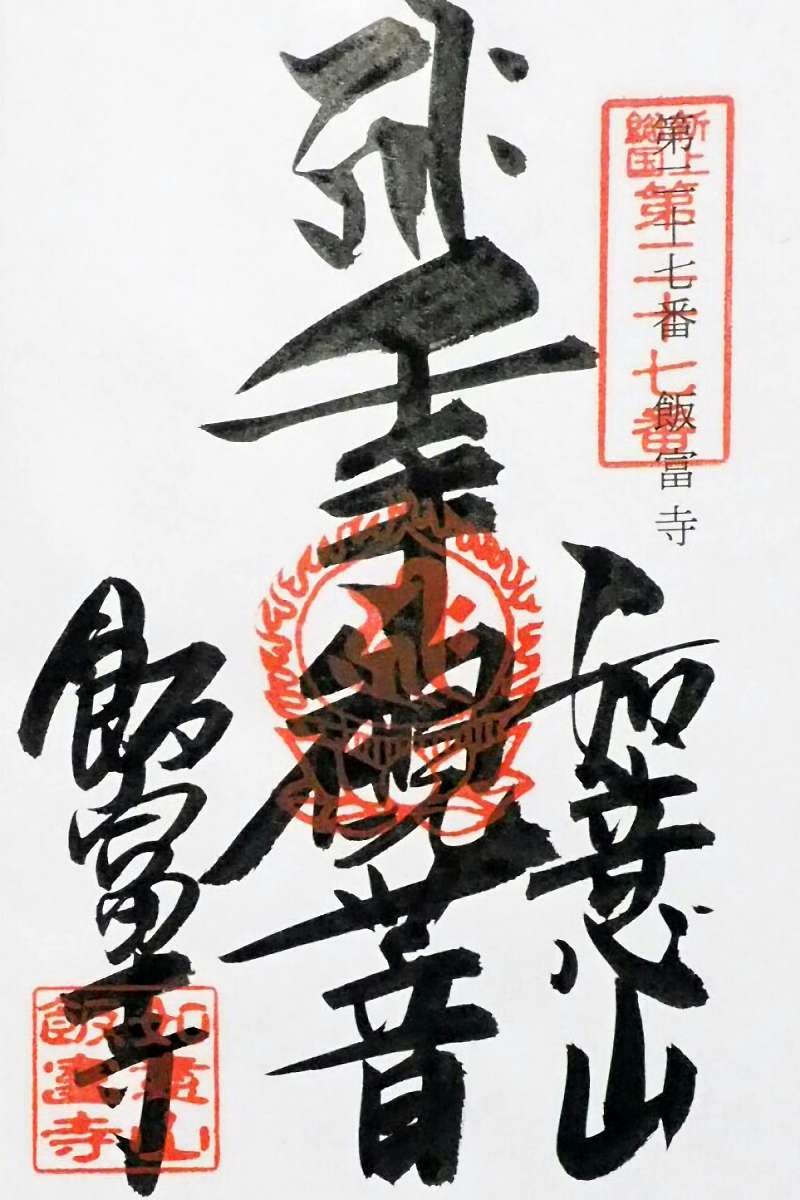 新上総国
第二十七番
第二十七番 飯富寺
如意山
千手観世音
飯富寺
如意山
飯富寺